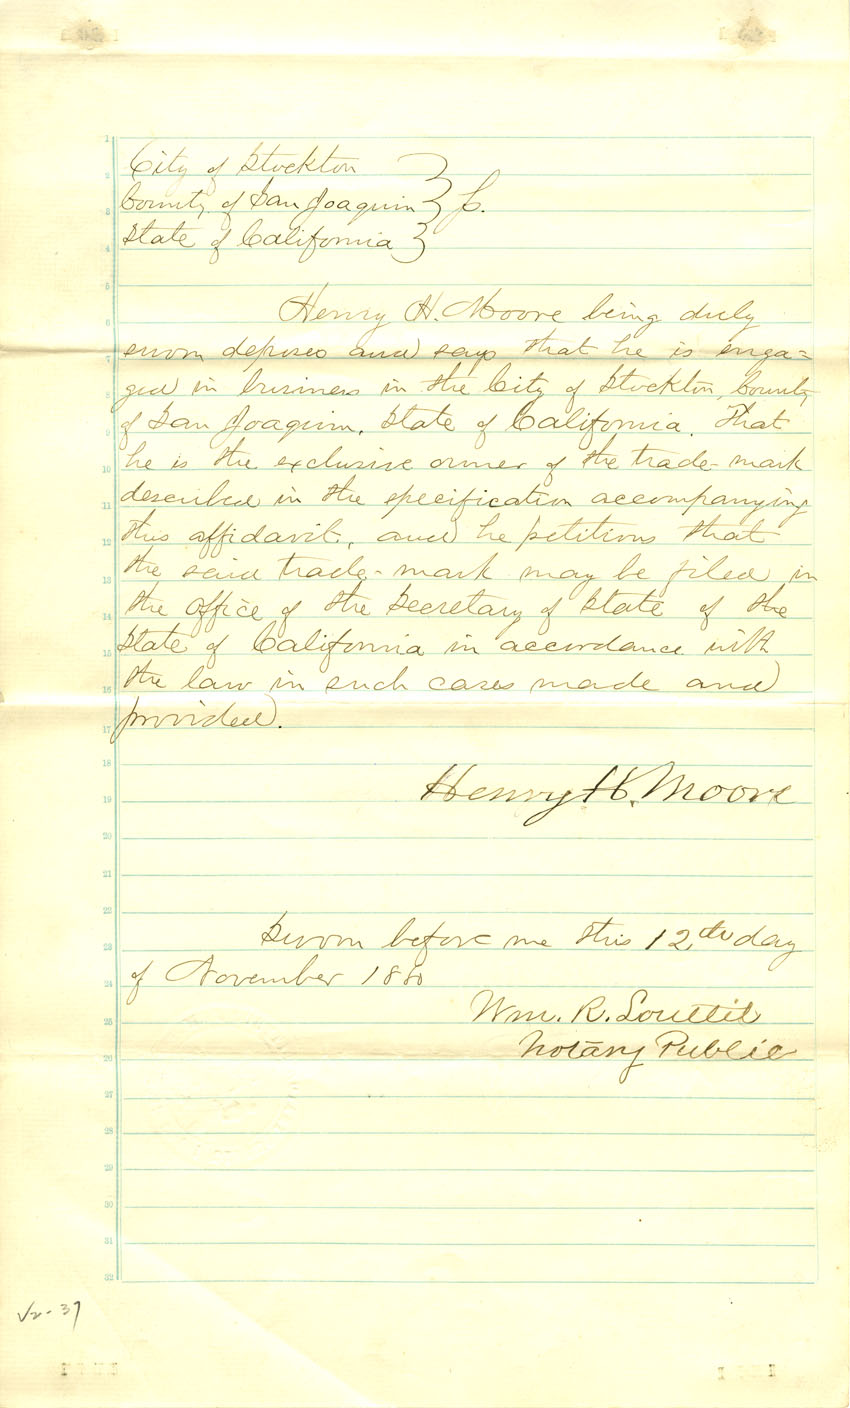 City of Stockton
County of San Joaquin } ss.
State of California
Henry H. Moore being duly
sworn deposes and says that he is enga=
ged in business in the City of Stockton, County
of San Joaquin, State of California. That
he is the exclusive owner of the trade-mark
described in the specification accompanying
this affidavit, and he petitions that
the said trade-mark may be filed in
the office of the Secretary of State of the
State of California in accordance with
the law in such cases made and
provided.
Henry H. Moore
Sworn before me this 12th day
of November 1880
Wm. R. Louttit
Notary Public